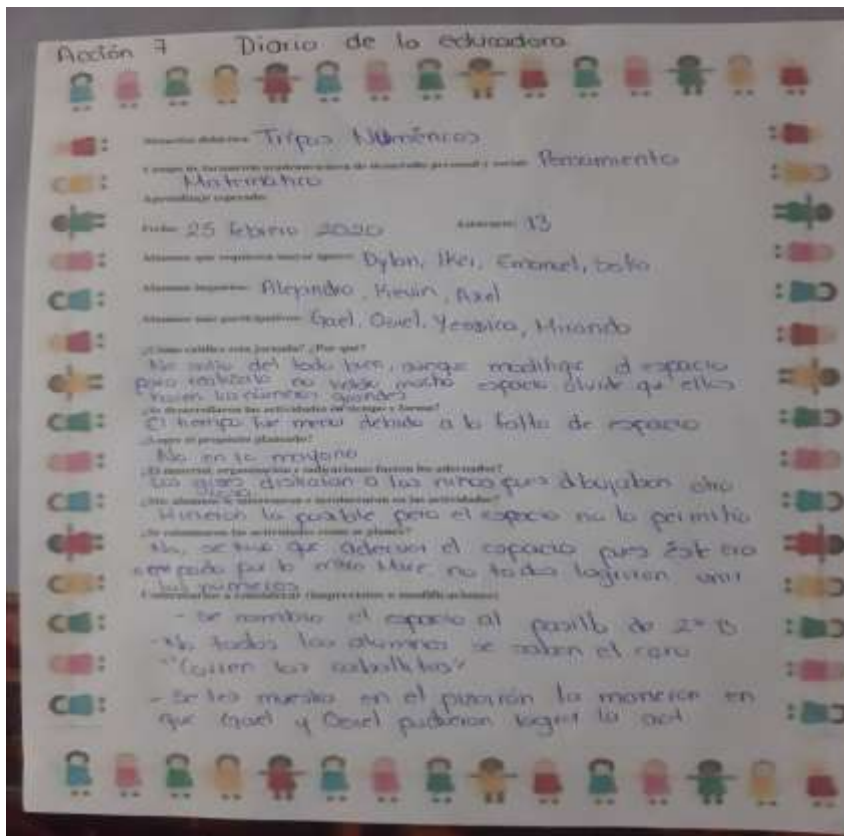 Acción 7 Diario de la educadora
Situación didáctica: Tripas Numéricos
Campo de formación académica/área de desarrollo personal y social: Pensamiento
Matemático
Aprendizaje esperado:
Fecha: 25 febrero 2020 Asistencia: 13
Alumnos que requieren mayor apoyo: Dylan, Iker, Emanuel,
Alumnos inquietos: Alejandro, Kevin, Axel
Alumnos más participativos: Gael, Osiel, Yessica, Miranda
¿Cómo califico esta jornada? ¿Por qué?
No salio del todo bien, aunque modifique el espacio
para realizarlo no había mucho espacio olvide que ellos
hacen los números grandes
¿Se desarrollaron las actividades en tiempo y forma?
El tiempo fue menor debido a la falta de espacio
¿Logré el propósito planeado?
No en la mayoría
¿El material, organización e indicaciones fueron los adecuados?
Los gises distraian a los niños pues dibujaban otra
¿Mis alumnos se interesaron e involucraron en las actividades?
Hicieron lo posible pero el espacio no lo permitía
¿Se realizaron las actividades como se planeó?
No, se tuvo que adecuar el espacio pues éste era
ocupado por lo no todos lograron unir
los números
- Se cambio el espacio al pasillo de 2° B
- No todos los alumnos se saben el coro
"Corren los caballitos"
- Se les muestra en el pizarrón la manera en
que Gael y Osiel pudieron lograr la act